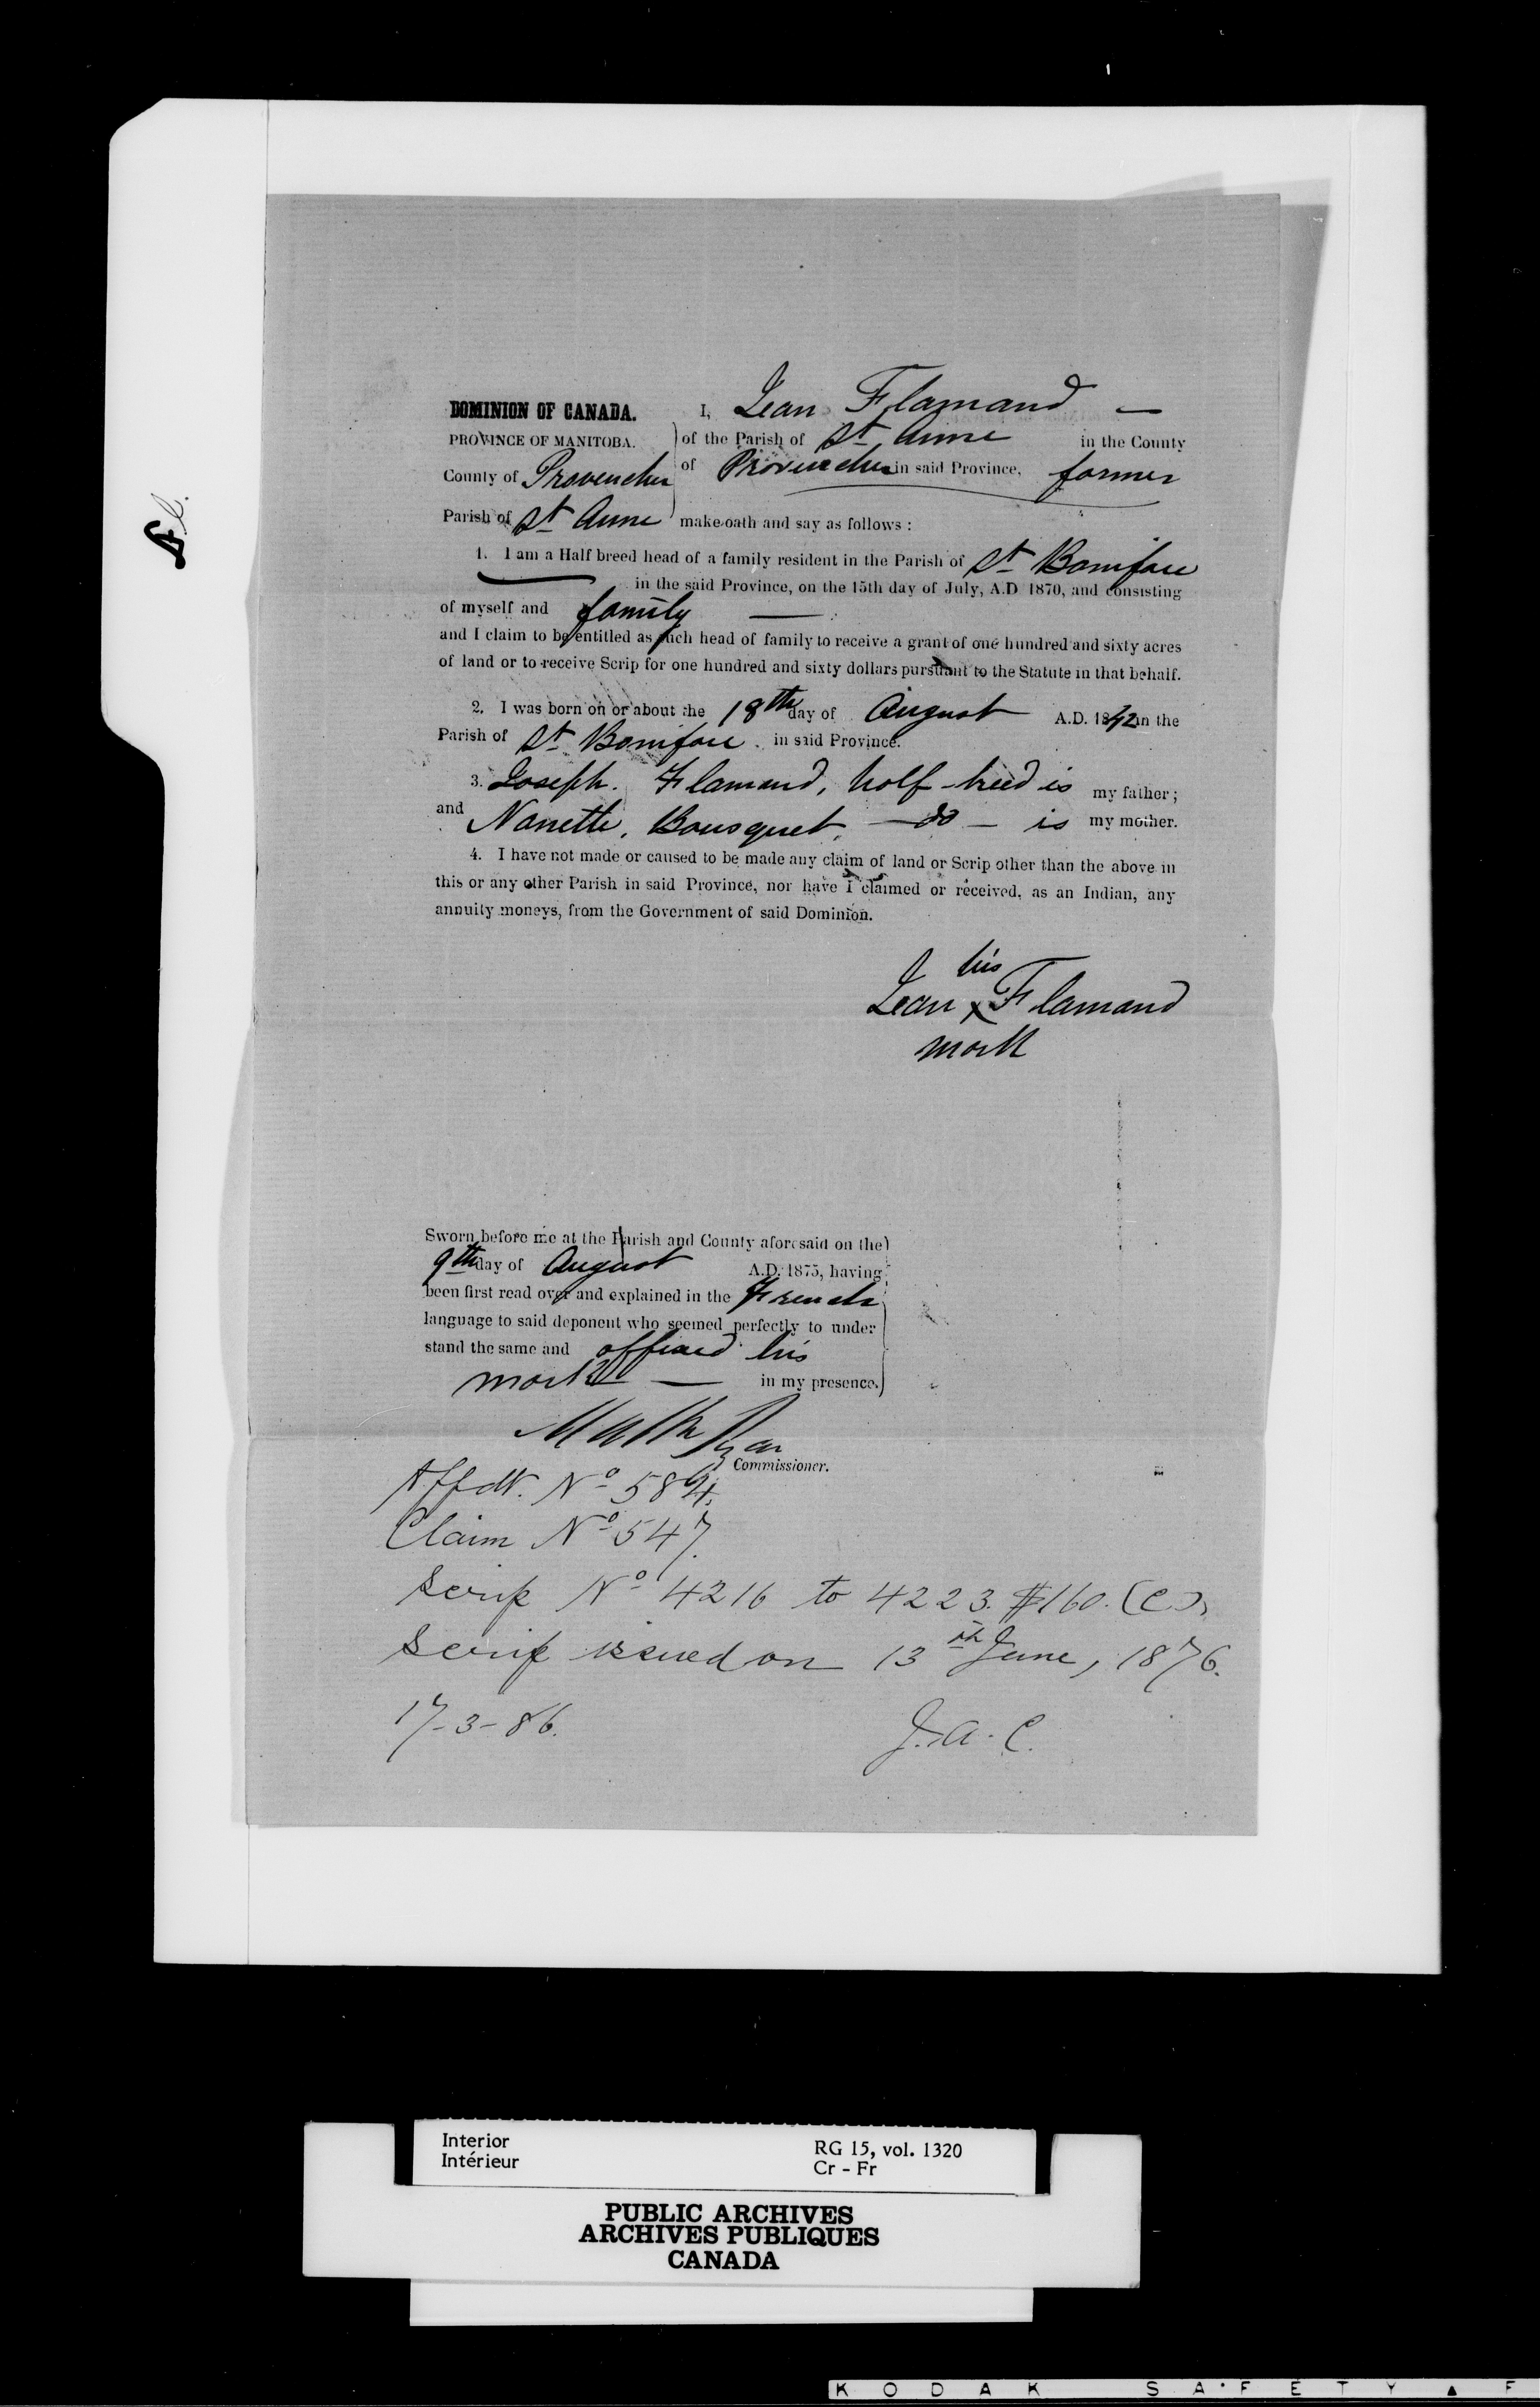 DOMINION OF CANADA.
PROVINCE OF MANITOBA.
County of Provencher
Parish of St Anne
I, Jean Flamand —
of the Parish of St Anne in the County
of Provencher in said Province, farmer
make oath and say as follows :
1. I am a Half breed head of a family resident in the Parish of St Boniface
in the said Province, on the 15th day of July, A.D 1870, and consisting
of myself and family —
and I claim to be entitled as such head of family to receive a grant of one hundred and sixty acres
of land or to receive Scrip for one hundred and sixty dollars pursuant to the Statute in that behalf.
2. I was born on or about the 18th day of August A.D. 1842 in the
Parish of St Boniface in said Province.
3. Joseph Flamand, half-breed is my father;
and Nanette, Bousquet, — do — is my mother.
4. I have not made or caused to be made any claim of land or Scrip other than the above in
this or any other Parish in said Province, nor have I claimed or received, as an Indian, any
annuity moneys, from the Government of said Dominion.
his
Jean X Flamand
mark
Sworn before me at the Parish and County aforesaid on the
9th day of August A.D. 1875, having
been first read over and explained in the French
language to said deponent who seemed perfectly to under
stand the same and affixed his
mark — in my presence.
Math Ryan
Commissioner.
Affdt. No 584.
Claim No 547.
Scrip No 4216 to 4223. $160. (C).
Scrip issued on 13th June, 1876.
17-3-86.
J.A.C.
Interior
Intérieur
RG 15, vol. 1320
Cr - Fr
PUBLIC ARCHIVES
ARCHIVES PUBLIQUES
CANADA
KODAK SAFETY F